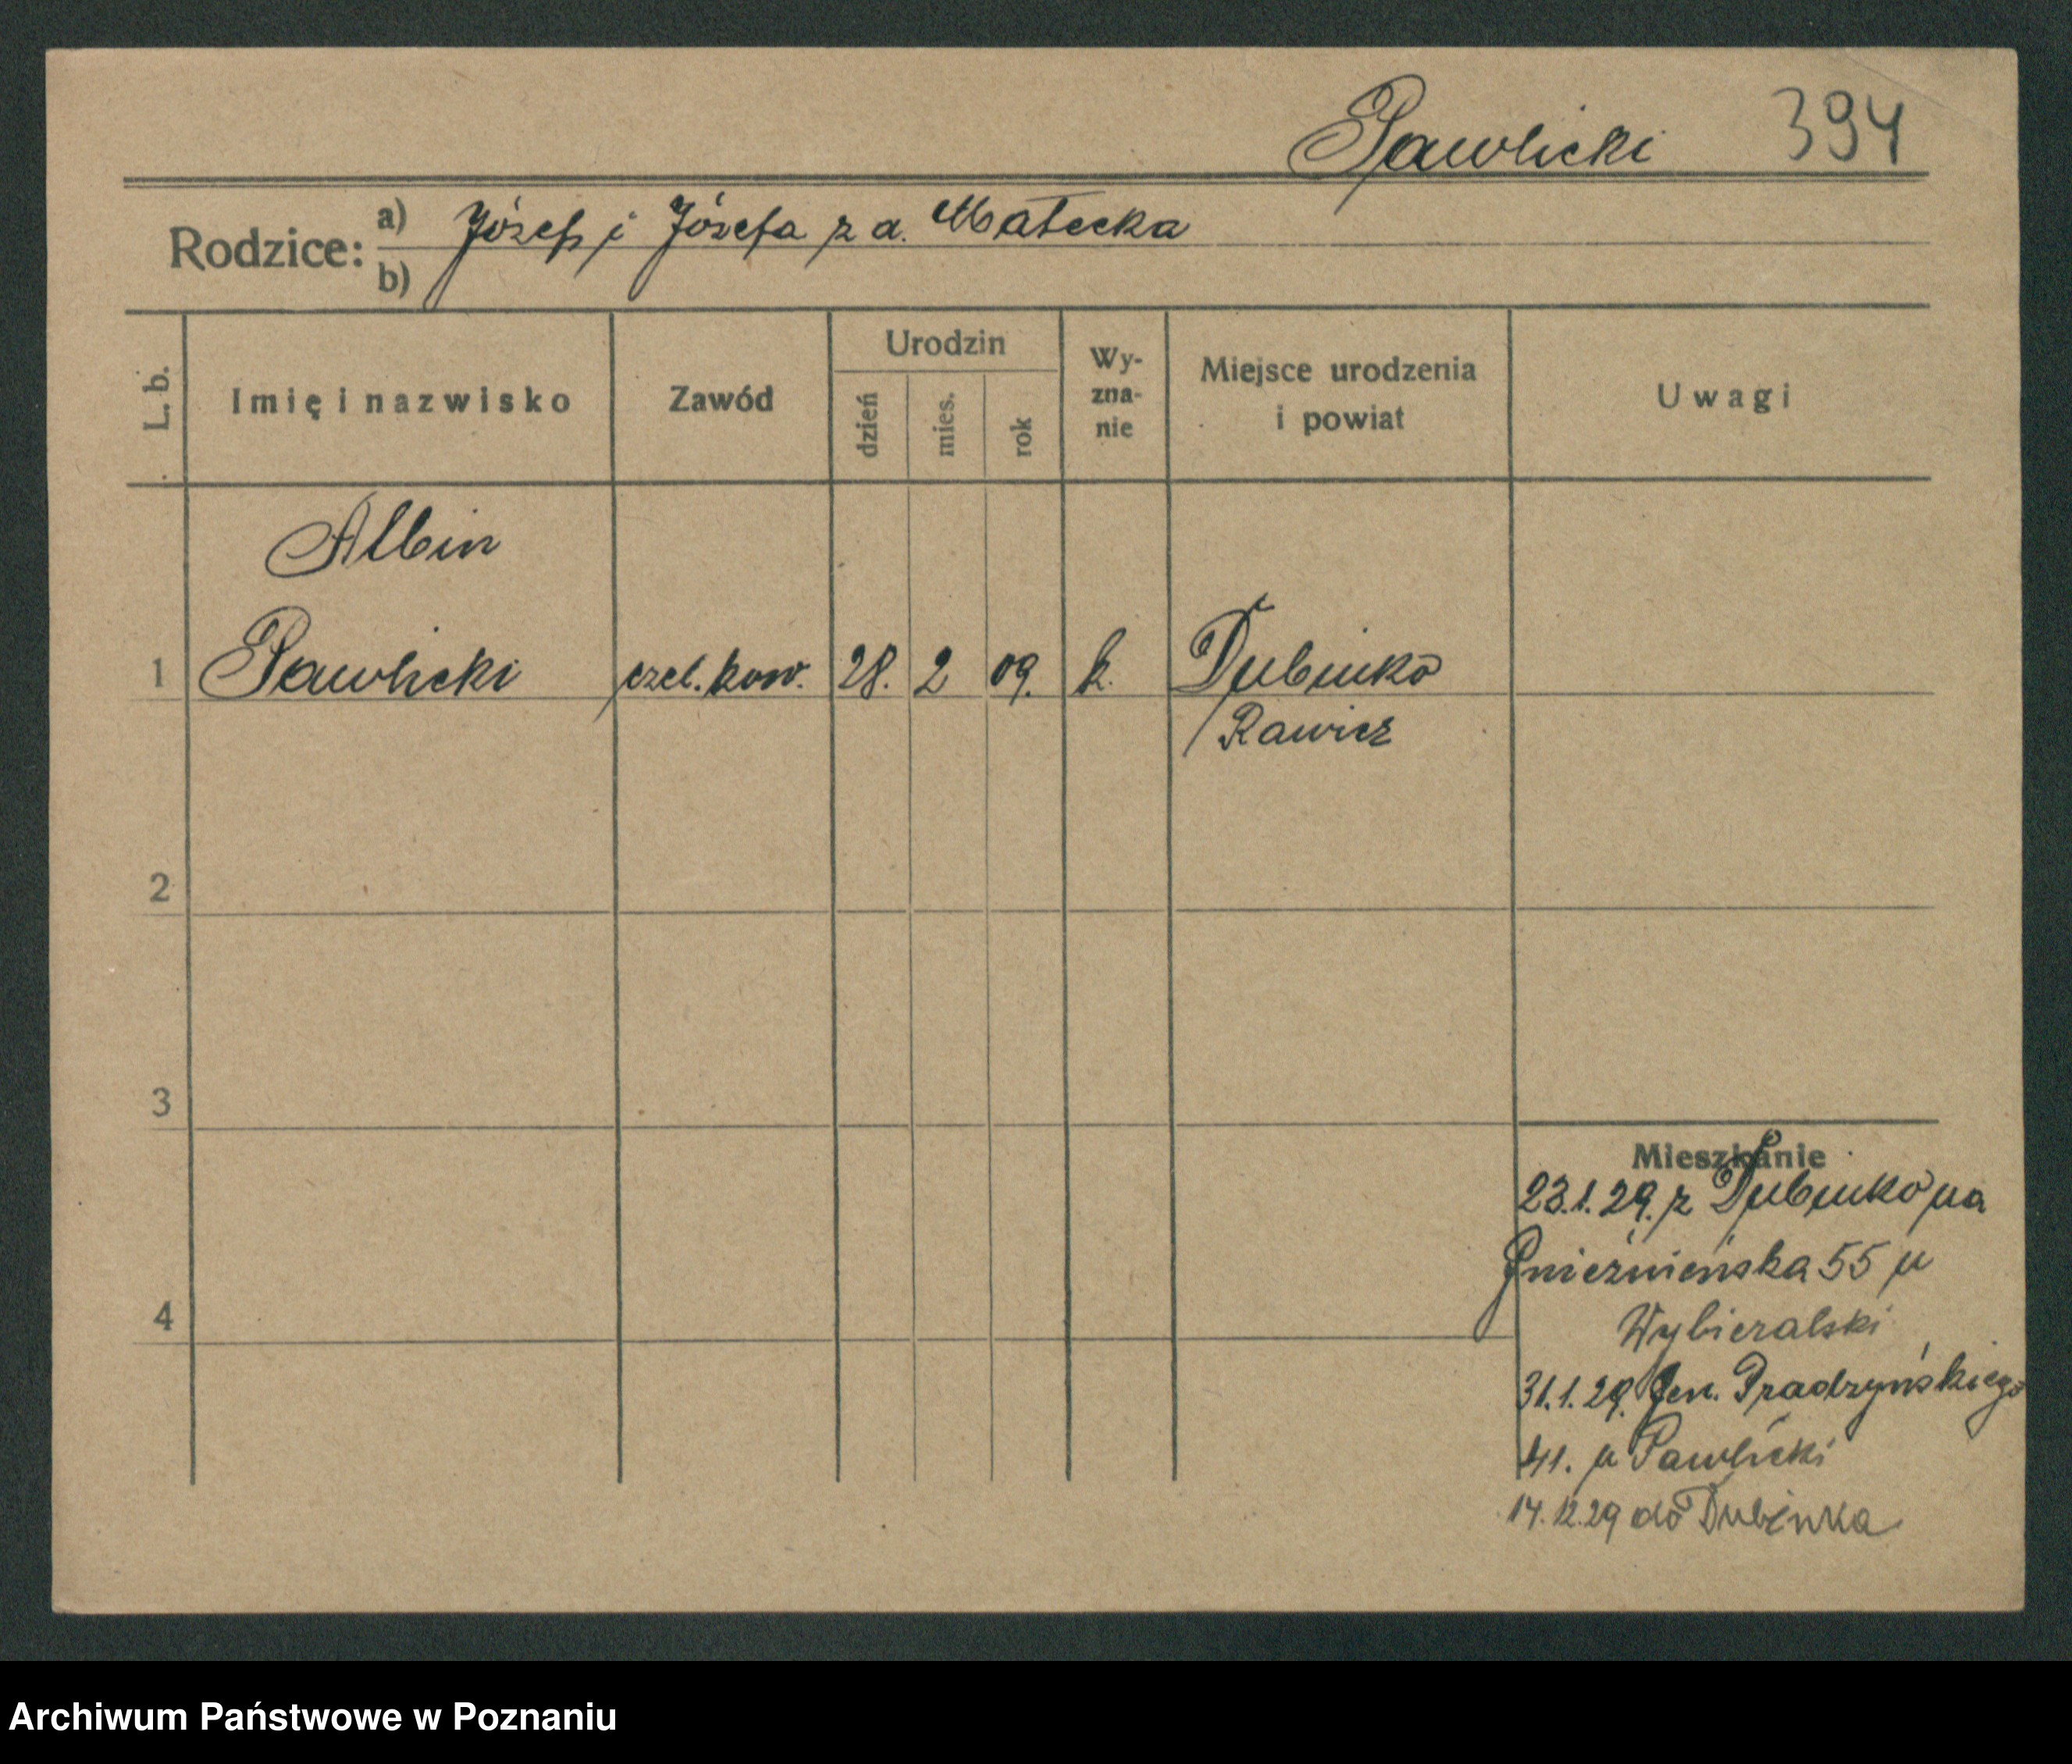 Pawlicki 394
Rodzice: a) Józef i Józefa z d. Małecka
b)
L. b. Imię i nazwisko Zawód Urodzin dzień mies. rok Wy-zna-nie Miejsce urodzenia i powiat Uwagi
Albin
1 Pawlicki czel. kow. 28. 2 09. k. Dubinko
Rawicz
2
3
Mieszkanie
23.1.29. z Dubinko na
Gnieźnieńska 55 u
4 Wybieralski
31.1.29. Gen. Prądzyńskiego
41. u Pawlicki
14.12.29 do Dubinka
Archiwum Państwowe w Poznaniu